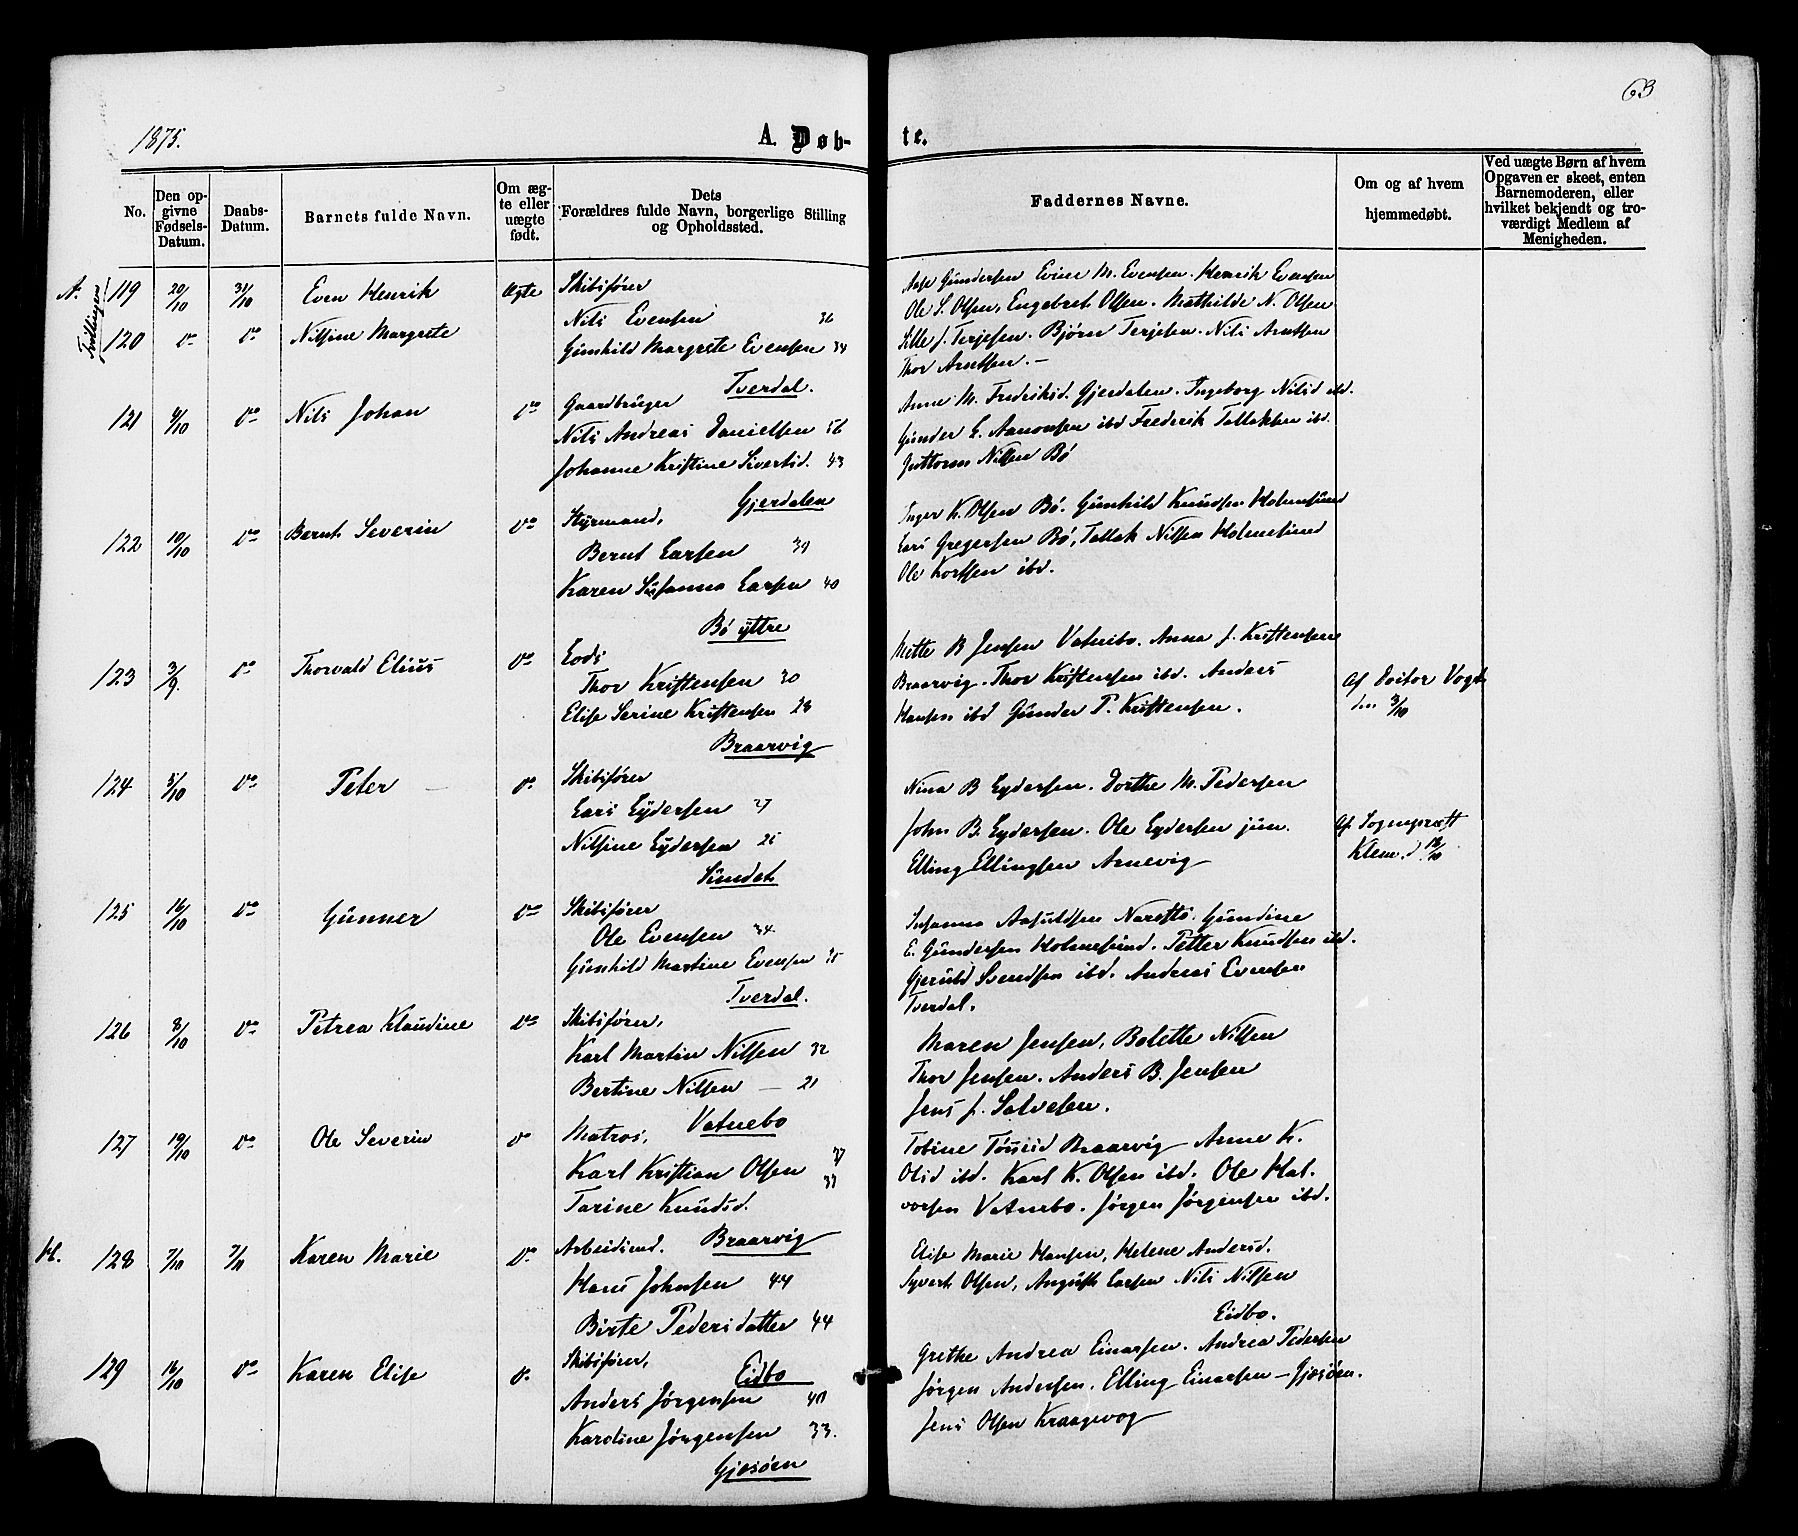 63
1875.
A. Døb-
te.
No.
Den op-
givne
Fødsels-
Datum.
Daabs-
Datum.
Barnets fulde Navn.
Om æg-
te eller
uægte
født.
Dets
Forældres fulde Navn, borgerlige Stilling
og Opholdssted.
Faddernes Navne.
Om og af hvem
hjemmedøbt.
Ved uægte Børn af hvem
Opgaven er skeet, enten
Barnemoderen, eller
hvilket bekjendt og tro-
værdigt Medlem af
Menigheden.
A. Tvillinger
119 20/10 31/10 Even Henrik Ægte Skibsfører
Nils Evensen 36
Aase Gundersen Evine M. Evensen. Henrik Evensen
Ole S. Olsen, Engebret Olsen. Mathilde N. Olsen
120 do do Nilsine Margrete
Gunhild Margrete Evensen 34
Tverdal.
Sille J. Terjesen. Bjørn Terjesen. Nils Arntsen
Thor Arntsen. —
121 4/10 do Nils Johan do Gaardbruger
Nils Andreas Danielsen 56
Johanne Kristine Sivertsd. 43
Gjerdalen
Anne M. Fredriksd. Gjerdalen. Ingeborg Nilsd ibd.
Gunder E. Aanonsen ibd Frederik Tallaksen ibd.
Guttorm Nilsen Bø
122 10/10 do Bernt Severin do Styrmand,
Bernt Larsen 39
Karen Susanna Larsen 40
Bø yttre
Inger K. Olsen Bø. Gunhild Knudsen Holmesund
Lars Gregersen Bø, Tallak Nilsen Holmesund
Ole Korssen ibd.
123 3/9. do Thorvald Elius do Lods
Thor Kristensen 30
Elise Serine Kristensen 28
Braarvig
Mette B Jensen Vatnebo. Anna J. Kristensen
Braarvig. Thor Kristensen ibd. Anders
Hansen ibd Gunder P. Kristensen.
Af Doktor Vogt
den 3/10
124 5/10 do Peter do Skibsfører
Lars Eydersen 27
Nilsine Eydersen 25
Sundet
Nina B Eydersen. Dorthe M. Pedersen
John B. Eydersen. Ole Eydersen jun.
Elling Ellingsen Arnevig
Af Sogneprest
Klem. d.
125 16/10 do Gunner do Skibsfører
Ole Evensen 34
Gunhild Martine Evensen
Tverdal.
Susanna Aasuldsen Narestø. Gundine
E. Gundersen Holmesund. Petter Knudsen ibd.
Gjeruld Svendsen ibd. Andreas Evensen
Tverdal.
126 8/10 do Petrea Klaudine do Skibsfører,
Karl Martin Nilsen 32
Bertine Nilsen — 21
Vatnebo
Maren Jensen, Bolette Nilsen
Thor Jensen. Anders B. Jensen
Jens J. Salvesen.
127 19/10 do Ole Severin do Matros,
Karl Kristian Olsen 37
Tarine Knudsd. 33
Braarvig
Tobine Braarvig Anne K.
Olsd ibd. Karl K. Olsen ibd. Ole Hal-
vorsen Vatnebo. Jørgen Jørgensen ibd.
H. 128 7/10 7/11 Karen Marie do Arbeidsmd.
Hans Johnsen 44
Birte Pedersdatter 44
Eidbo
Elise Marie Hansen, Helene Andersd.
Syvert Olsen, August Larsen Nils Nilsen
Eidbo.
129 16/10 do Karen Elise do Skibsfører,
Anders Jørgensen 40
Karoline Jørgensen 33.
Gjesøen
Grethe Andrea Einarsen. Andrea Pedersen
Jørgen Andersen. Elling Einarsen — Gjesøen.
Jens Olsen Kraagevog